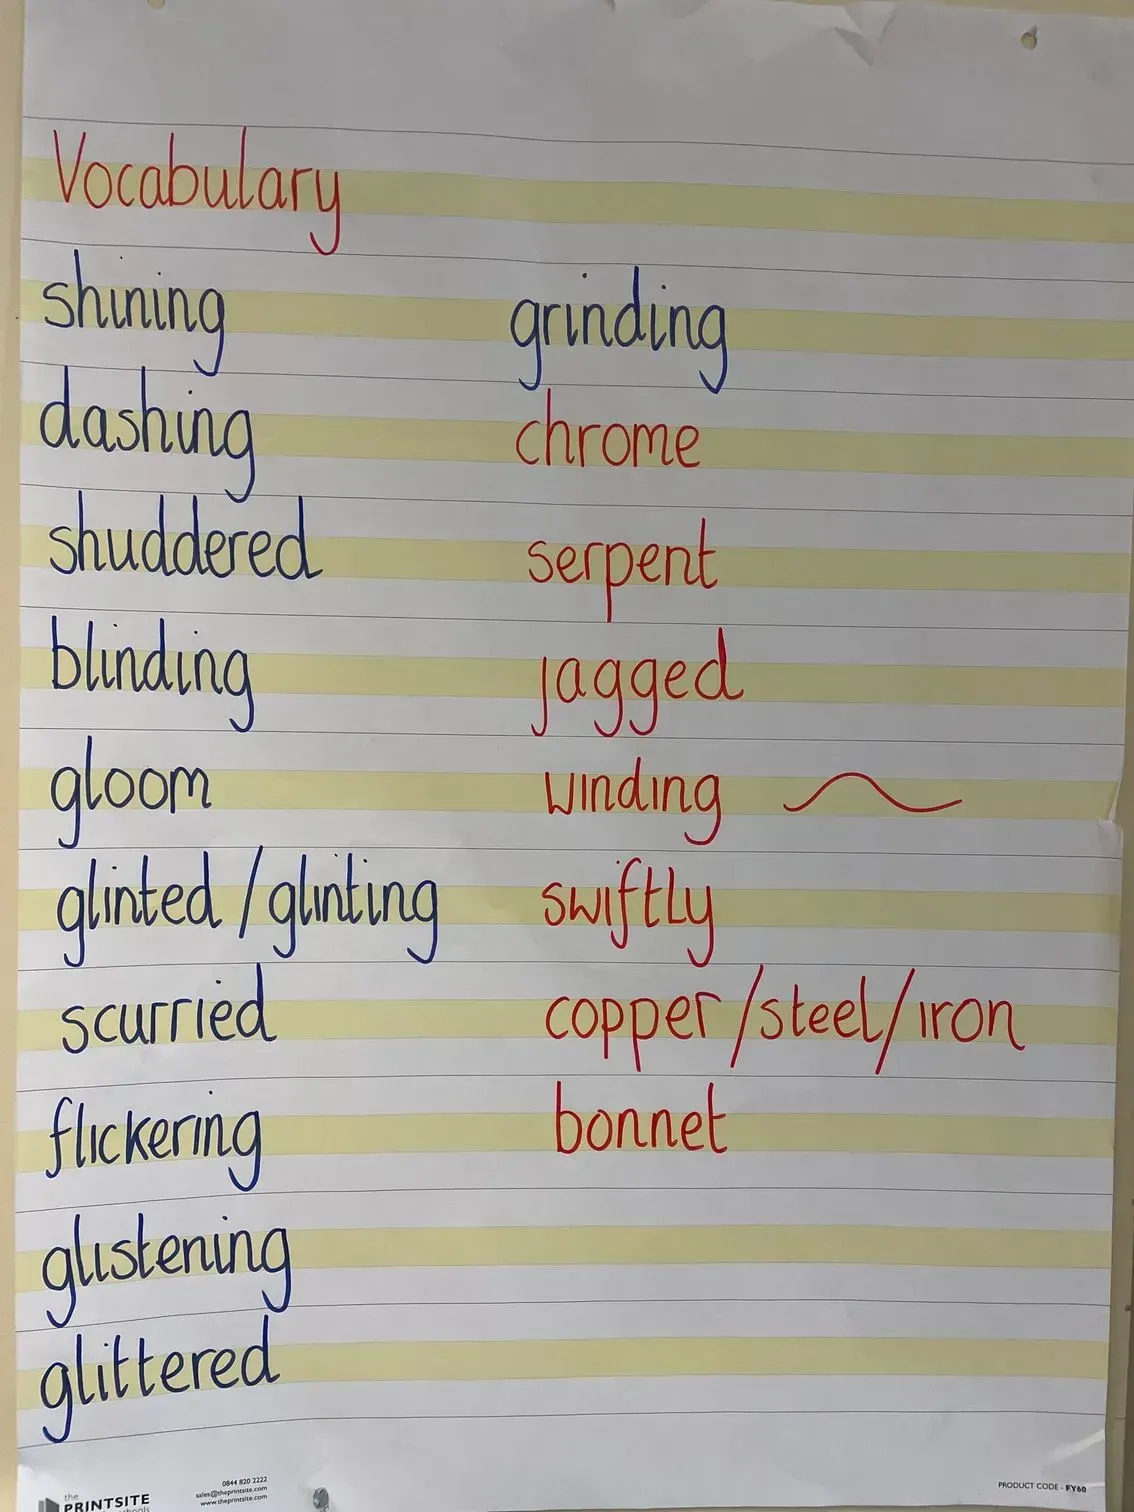 Vocabulary
shining
dashing
shuddered
blinding
gloom
glinted / glinting
scurried
flickering
glistening
glittered
grinding
chrome
serpent
jagged
winding
swiftly
copper / steel / iron
bonnet
the
PRINTSITE
0844 820 2222
sales@theprintsite.com
www.theprintsite.com
PRODUCT CODE - FY60